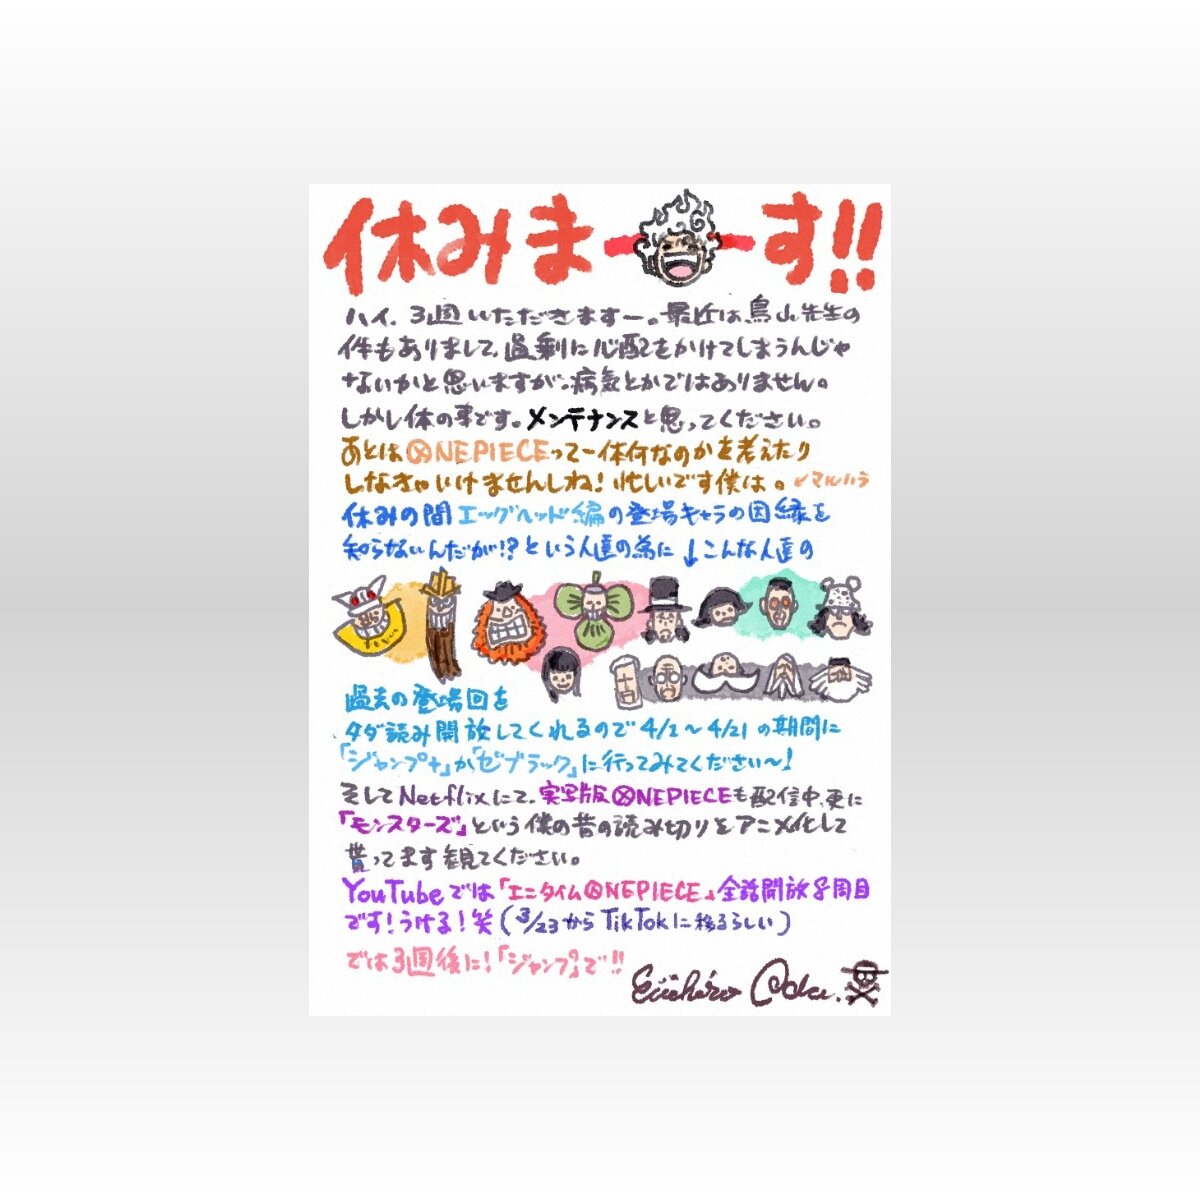 休みまーす!!
ハイ、3週いただきますー。最近は鳥山先生の
件もありまして、過剰に心配をかけてしまうんじゃ
ないかと思いますが、病気とかではありません。
しかし体の事です。メンテナンスと思ってください。
あとはONEPIECEって一体何なのかを考えたり
しなきゃいけませんしね!忙しいです僕は。↙マルハラ
休みの間エッグヘッド編の登場キャラの因縁を
知らないんだが!?という人達の為に↓こんな人達の
過去の登場回を
タダ読み開放してくれるので4/1〜4/21の期間に
「ジャンプ+」か「ゼブラック」に行ってみてください〜!
そしてNetflixにて、実写版ONEPIECEも配信中、更に
「モンスターズ」という僕の昔の読み切りをアニメ化して
貰ってます観てください。
YouTubeでは「エニタイムONEPIECE」全話開放8周目
です!うける!笑(3/23からTikTokに移るらしい)
では3週後に!「ジャンプ」で!!
Eiichiro Oda.